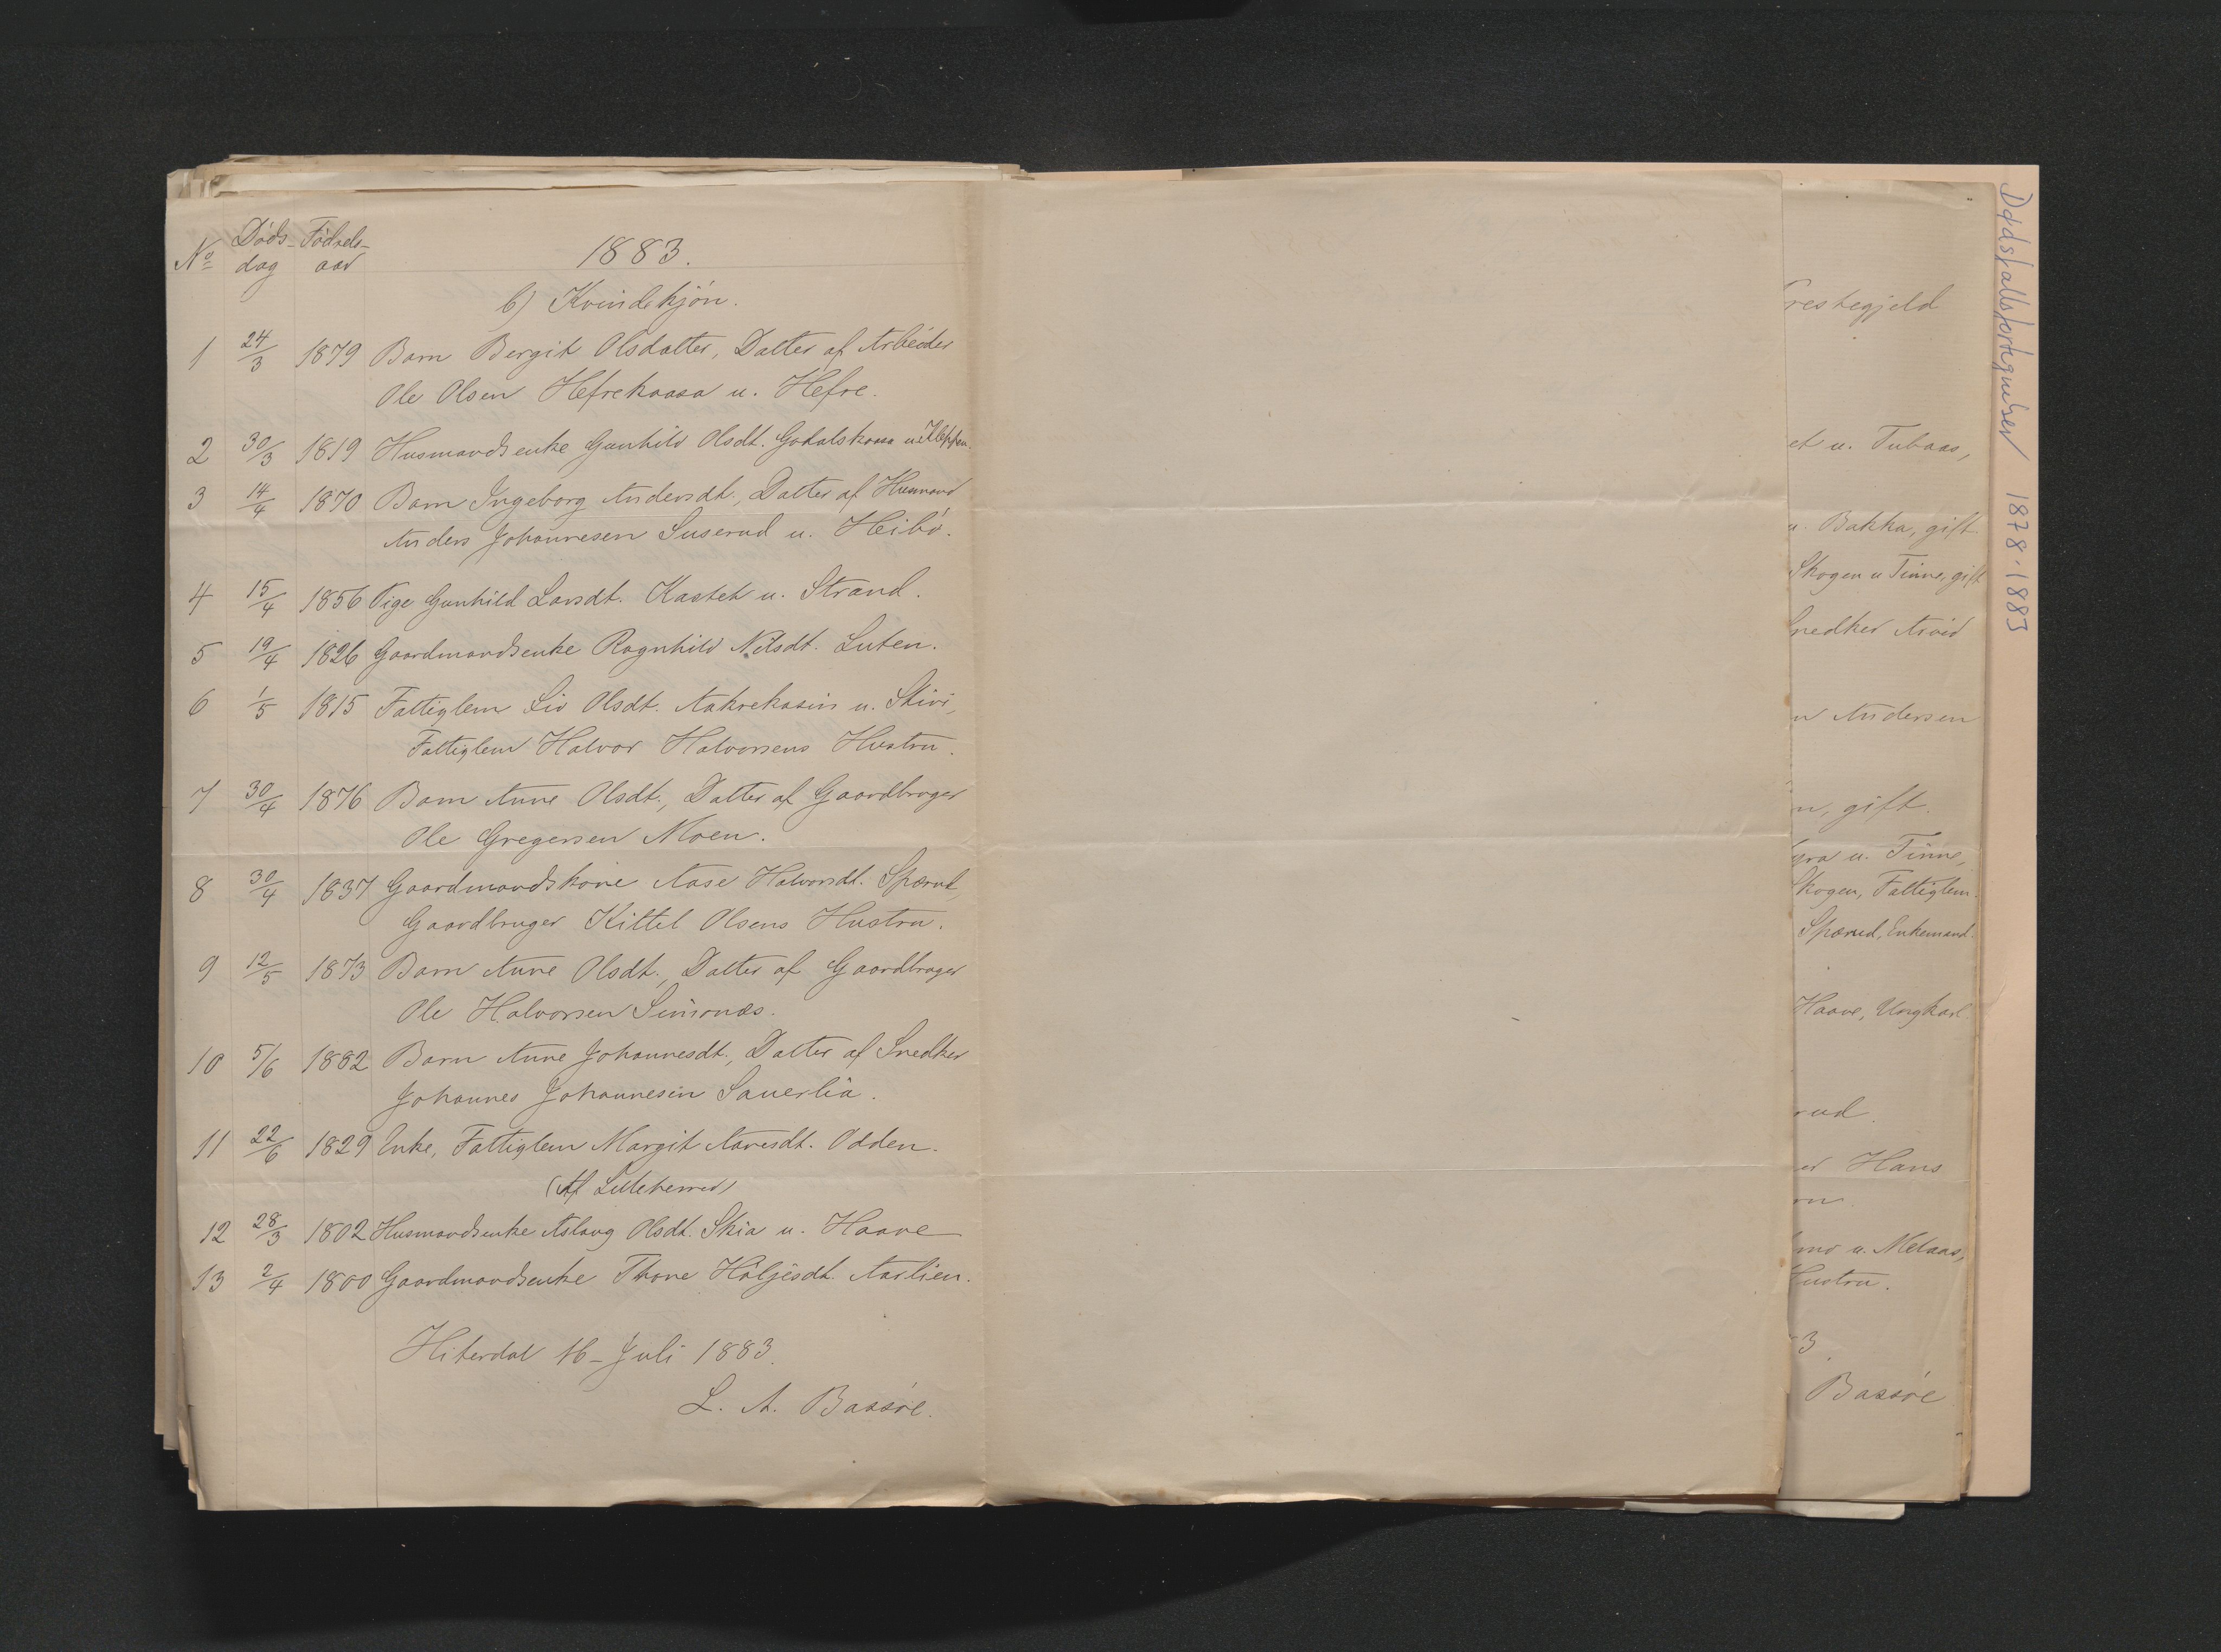 No Døds- Fødsels-
dag aar 1883.
b) Kvindekjøn.
1 24/3 1879 Barn Bergit Olsdatter, Datter af Arbeider
Ole Olsen Hefrekaasa u. Hefre.
2 30/3 1819 Husmandsenke Gunhild Olsdt. u. Kleppen.
3 14/4 1870 Barn Ingeborg Andersdt., Datter af Husmand
Anders Johannesen Suserud u. Heibø.
4 15/4 1856 Pige Gunhild Larsdt. Kastet u. Strand.
5 19/4 1826 Gaardmandsenke Ragnhild Nilsdt. Luten.
6 1/5 1815 Fattiglem Liv Olsdt. Aakrekasin u. Skivi,
Fattiglem Halvor Halvorsens Hustru.
7 30/4 1876 Barn Anne Olsdt., Datter af Gaardbruger
Ole Gregersen Moen.
8 30/4 1837 Gaardmandskone Aase Halvorsdt. Spærud,
Gaardbruger Kittel Olsens Hustru.
9 12/5 1873 Barn Anne Olsdt., Datter af Gaardbruger
Ole Halvorsen Sem
10 5/6 1882 Barn Anne Johannesdt., Datter af Snedker
Johannes Johannesen Sauerlia.
11 22/6 1829 Enke, Fattiglem Margit Aavesdt. Odden.
(Af Lilleherred)
12 28/3 1802 Husmandsenke Aslaug Olsdt. Skia u. Haave
13 2/4 1800 Gaardmandsenke Thone Høljesdt. Aarlien.
Hiterdal 16 - Juli 1883.
L. A. Bassøe.
restegjeld
et u. Tubaas,
u. Bakka, gift
Skogen u Tinne, gift
nedker Arvid
n Andersen
n, gift.
gra u. Tinne,
Skogen, Fattiglem.
Spærud, Enkemand.
Haave, Ungkarl.
rud.
er Hans
en.
mo u. Melaas,
Hustru.
3.
Bassøe
Dødsfallsfortegnelser 1878-1883